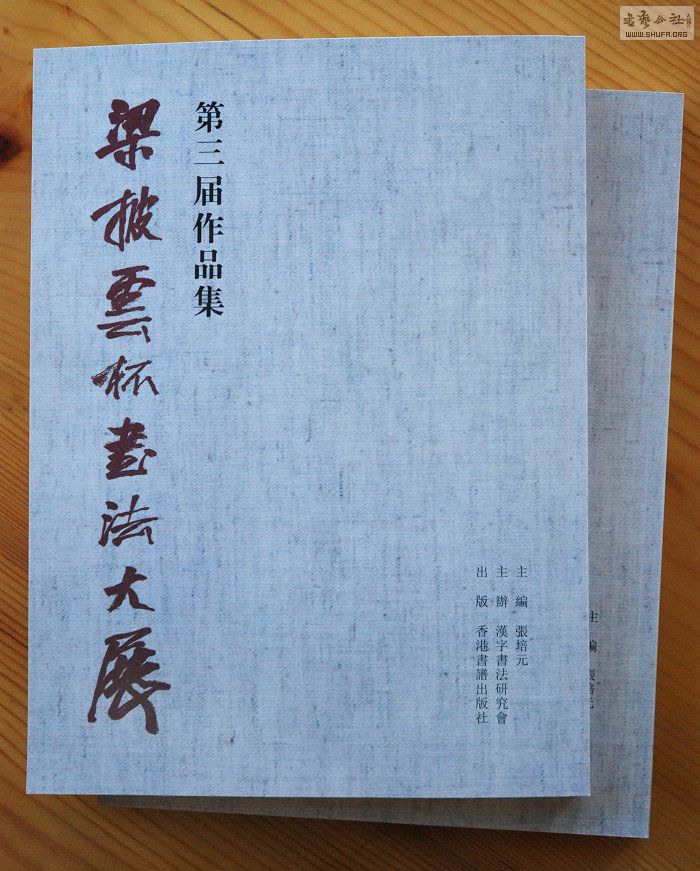 梁披雲杯書法大展
第三届作品集
主編 張培元
主辦 漢字書法研究會
出版 香港書譜出版社
主編 張培元
书艺公社
WWW.SHUFA.ORG